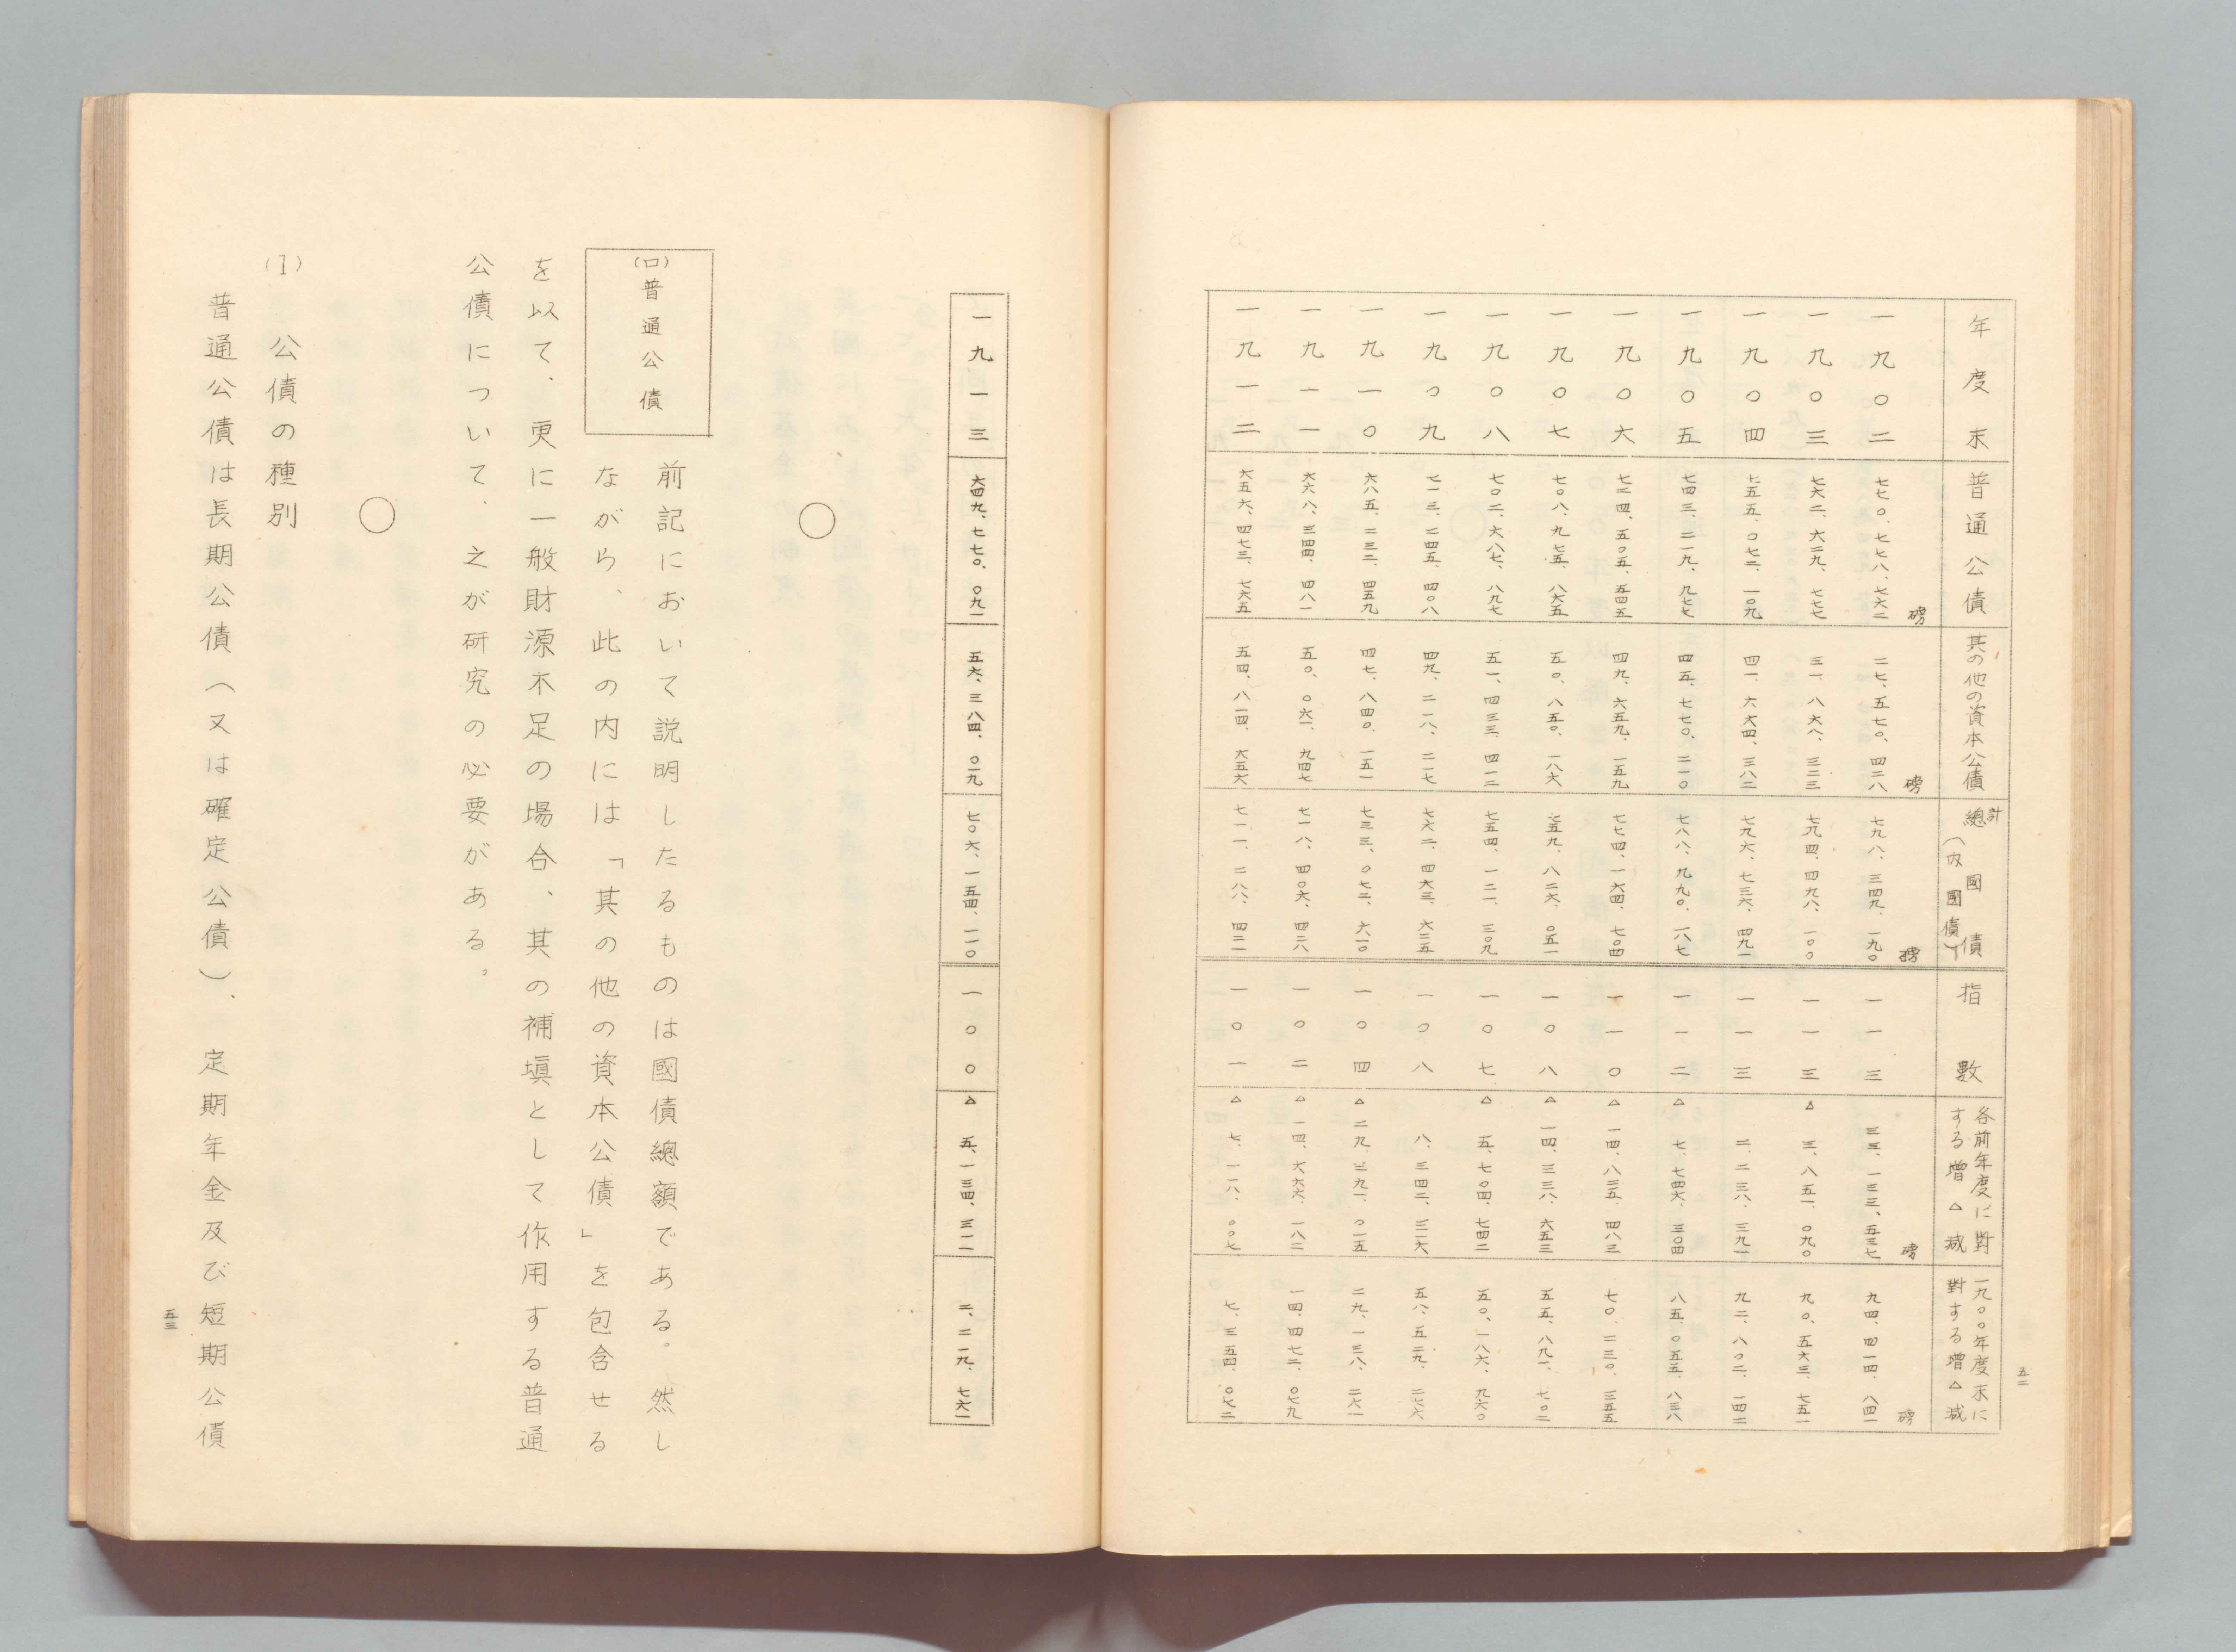 年度末 普通公債 其の他の資本公債 總計國債(内國債) 指數 各前年度に對する增△減 一九〇〇年度末に對する增△減
磅 磅 磅 磅 磅
一九〇二 七七〇、七七八、七六二 二七、五七〇、四二八 七九八、三四九、一九〇 一一三 三三、一三三、五三七 九四、四一四、八四一
一九〇三 七六二、六二九、七七七 三一、八六八、三二三 七九四、四九八、一〇〇 一一三 △三、八五一、〇九〇 九〇、五六三、七五一
一九〇四 七五五、〇七二、一〇九 四一、六六四、三八二 七九六、七三六、四九一 一一三 二、二三八、三九一 九二、八〇二、一四二
一九〇五 七四三、二一九、九七七 四五、七七〇、二一〇 七八八、九九〇、一八七 一一二 △七、七四六、三〇四 八五、〇五五、八三八
一九〇六 七二四、五〇五、五四五 四九、六五九、一五九 七七四、一六四、七〇四 一一〇 △一四、八二五、四八三 七〇、二三〇、三五五
一九〇七 七〇八、九七五、八六五 五〇、八五〇、一八六 七五九、八二六、〇五一 一〇八 △一四、三三八、六五三 五五、八九一、七〇二
一九〇八 七〇二、六八七、八九七 五一、四三三、四一二 七五四、一二一、三〇九 一〇七 △五、七〇四、七四二 五〇、一八六、九六〇
一九〇九 七一三、二四五、四〇八 四九、二一八、二一七 七六二、四六三、六二五 一〇八 八、三四二、三一六 五八、五二九、二七六
一九一〇 六八五、二三二、四五九 四七、八四〇、一五一 七三三、〇七二、六一〇 一〇四 △二九、三九一、〇一五 二九、一三八、二六一
一九一一 六六八、三四四、四八一 五〇、〇六一、九四七 七一八、四〇六、四二八 一〇二 △一四、六六六、一八二 一四、四七二、〇七九
一九一二 六五六、四七三、七六五 五四、八一四、六五六 七一一、二八八、四二一 一〇一 △七、一一八、〇〇七 七、三五四、〇七二
五二
一九一三 六四九、七七〇、〇九一 五六、三八四、〇一九 七〇六、一五四、一一〇 一〇〇 △五、一三四、三一一 二、二一九、七六一
○
(ロ)普通公債
前記において説明したるものは國債總額である。然し
ながら、此の内には「其の他の資本公債」を包含せる
を以て、更に一般財源不足の場合、其の補塡として作用する普通
公債について、之が研究の必要がある。
○
(1) 公債の種別
普通公債は長期公債(又は確定公債)、定期年金及び短期公債
五三